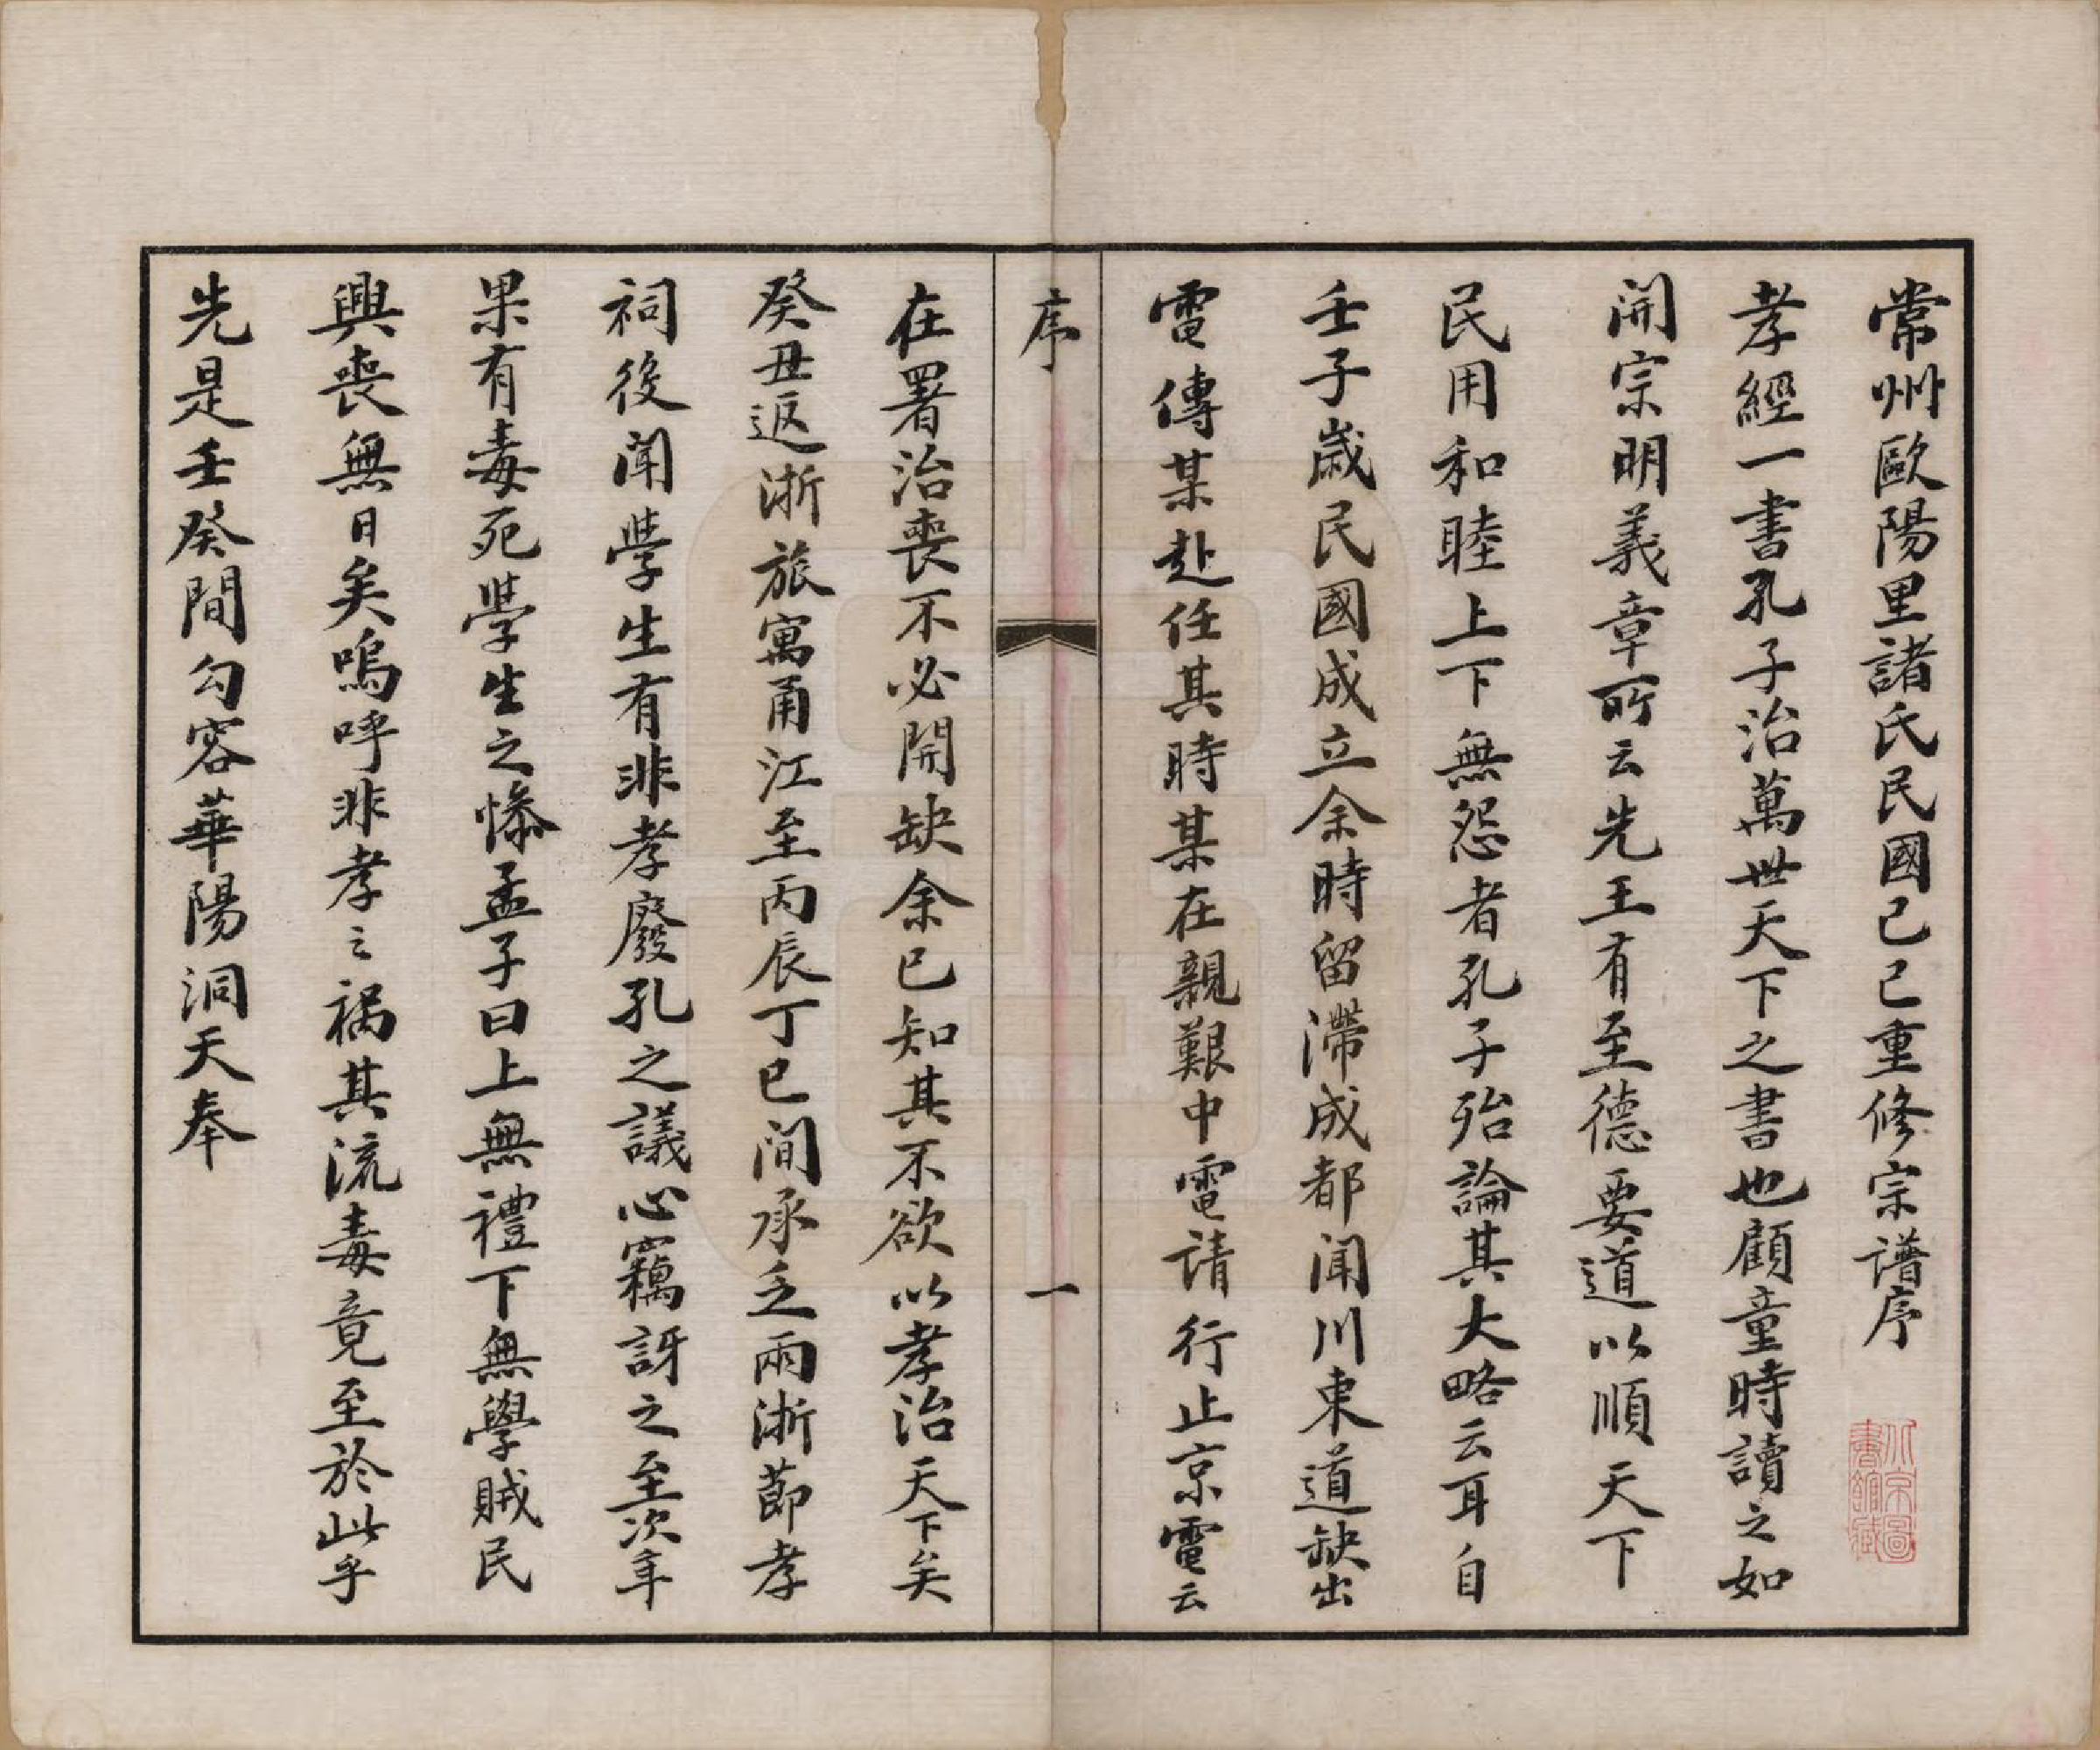 常州歐陽里諸氏民國己巳重修宗譜序
北京圖書館藏
孝經一書孔子治萬世天下之書也顧童時讀之如
開宗明義章所云先王有至德要道以順天下
民用和睦上下無怨者孔子殆論其大略云耳自
壬子歲民國成立余時留滯成都聞川東道缺出
電傳某赴任其時某在親艱中電请行止京電云
序
一
在署治喪不必開缺余已知其不欲以孝治天下矣
癸丑返浙旅寓甬江至丙辰丁巳间承乏兩浙節孝
祠後闻學生有非孝廢孔之議心竊訝之至次年
果有毒死學生之惨孟子曰上無禮下無學賊民
興喪無日矣嗚呼非孝之禍其流毒竟至於此乎
先是壬癸間勾容華陽洞天奉